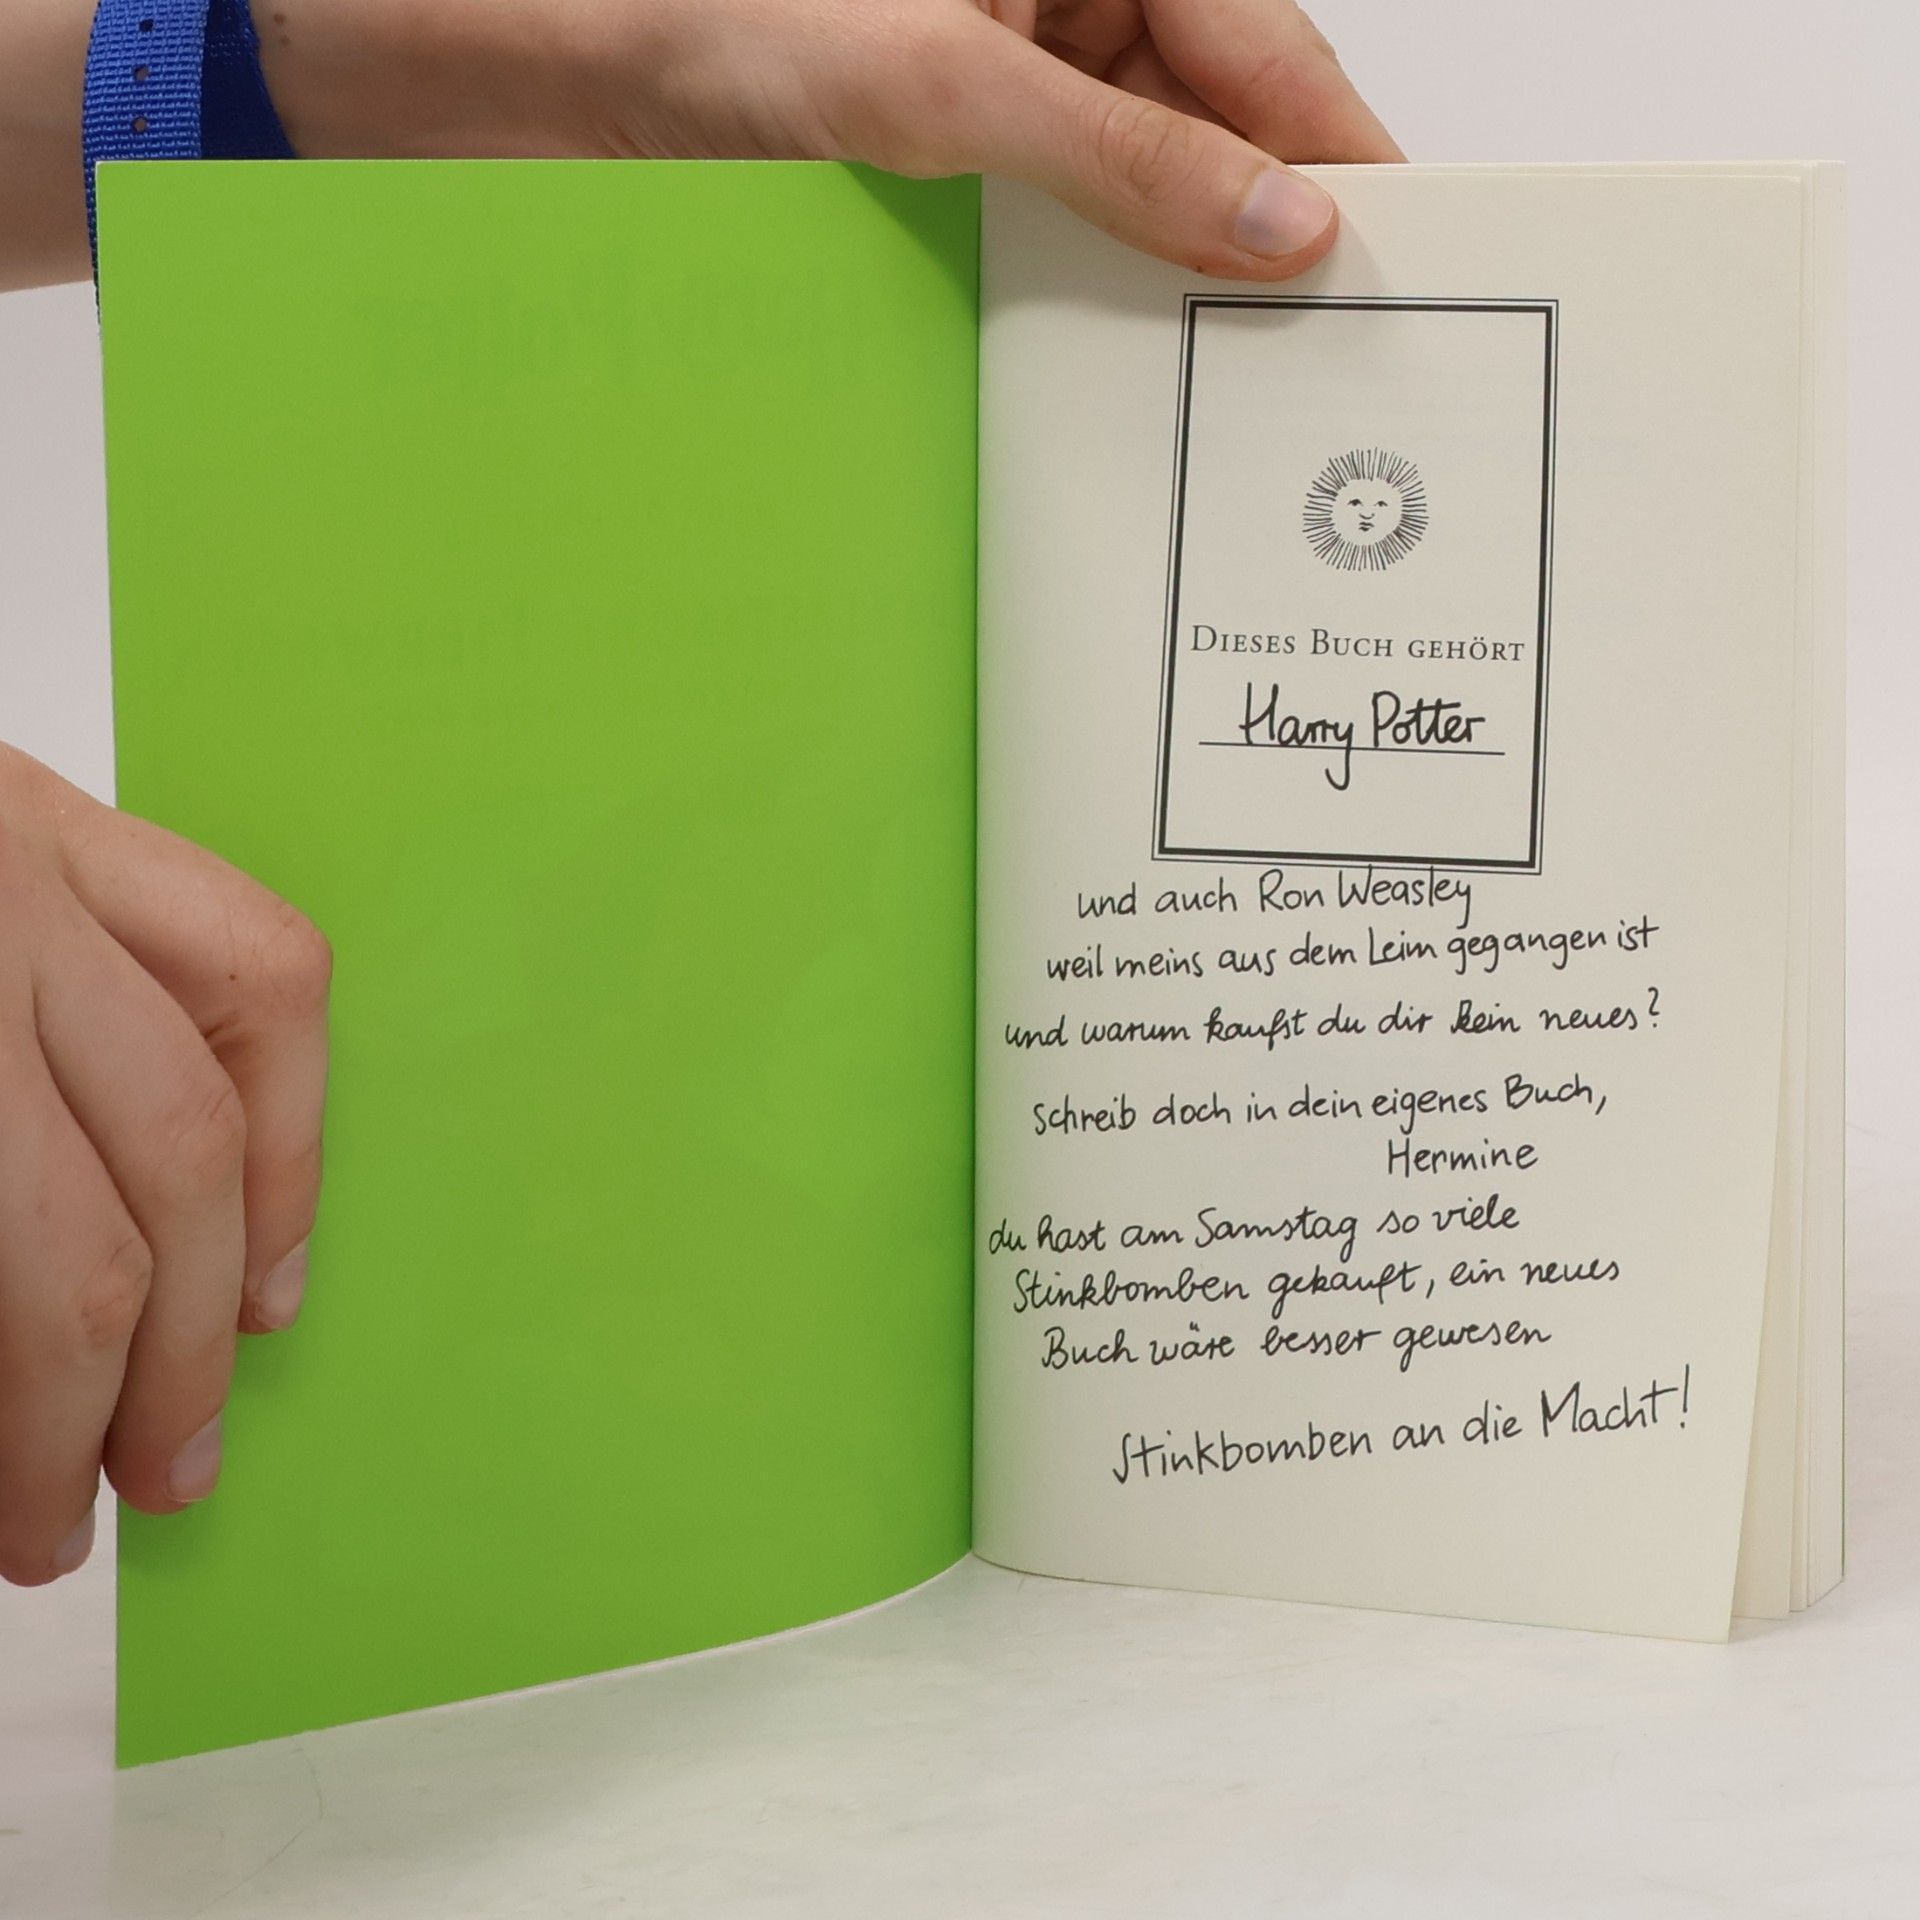 DIESES BUCH GEHÖRT
Harry Potter
und auch Ron Weasley
weil meins aus dem Leim gegangen ist
und warum kaufst du dir kein neues?
schreib doch in dein eigenes Buch,
Hermine
du hast am Samstag so viele
Stinkbomben gekauft, ein neues
Buch wäre besser gewesen
Stinkbomben an die Macht!